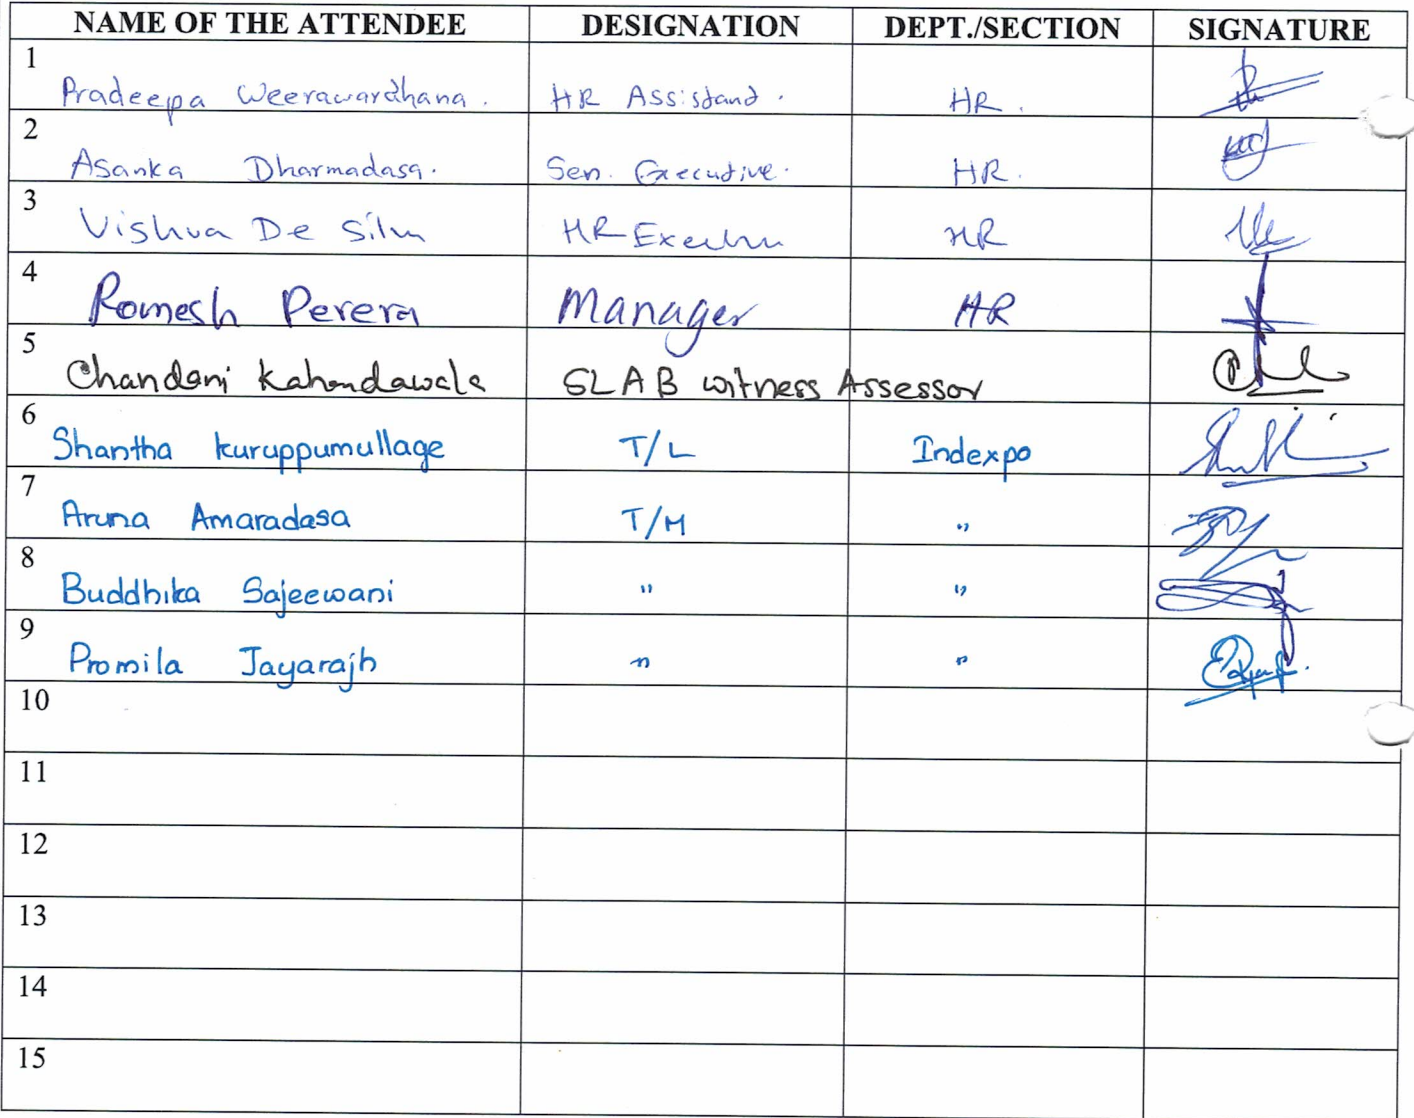 NAME OF THE ATTENDEE DESIGNATION DEPT./SECTION SIGNATURE
1 Pradeepa Weerawardhana. HR Assistand. HR.
2 Asanka Dharmadasa. Sen. Executive. HR.
3 Vishva De Silva HR Executive HR
4 Romesh Perera Manager HR
5 Chandani Kahandawala SLAB witness Assessor
6 Shantha kuruppumullage T/L Indexpo
7 Aruna Amaradasa T/M "
8 Buddhika Sajeewani " "
9 Promila Jayarajh " "
10
11
12
13
14
15